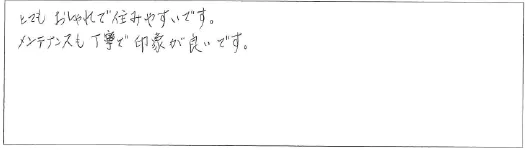 とてもおしゃれで住みやすいです。
メンテナンスも丁寧で印象が良いです。